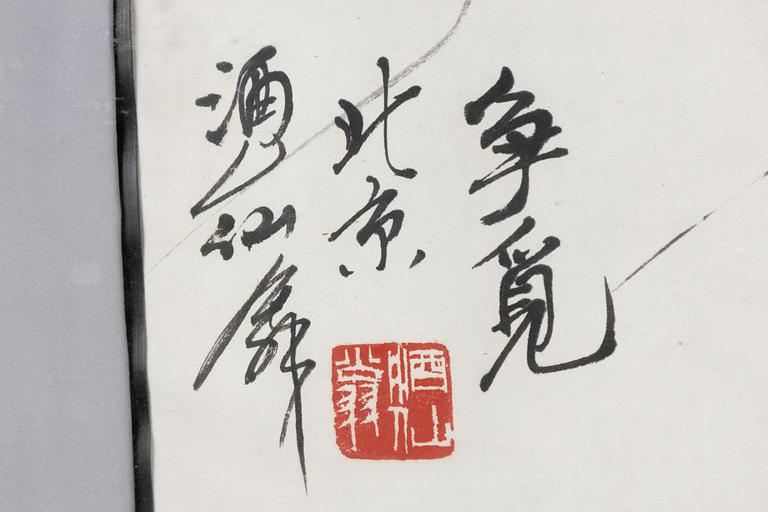 争覓
北京
酒仙翁
酒仙翁